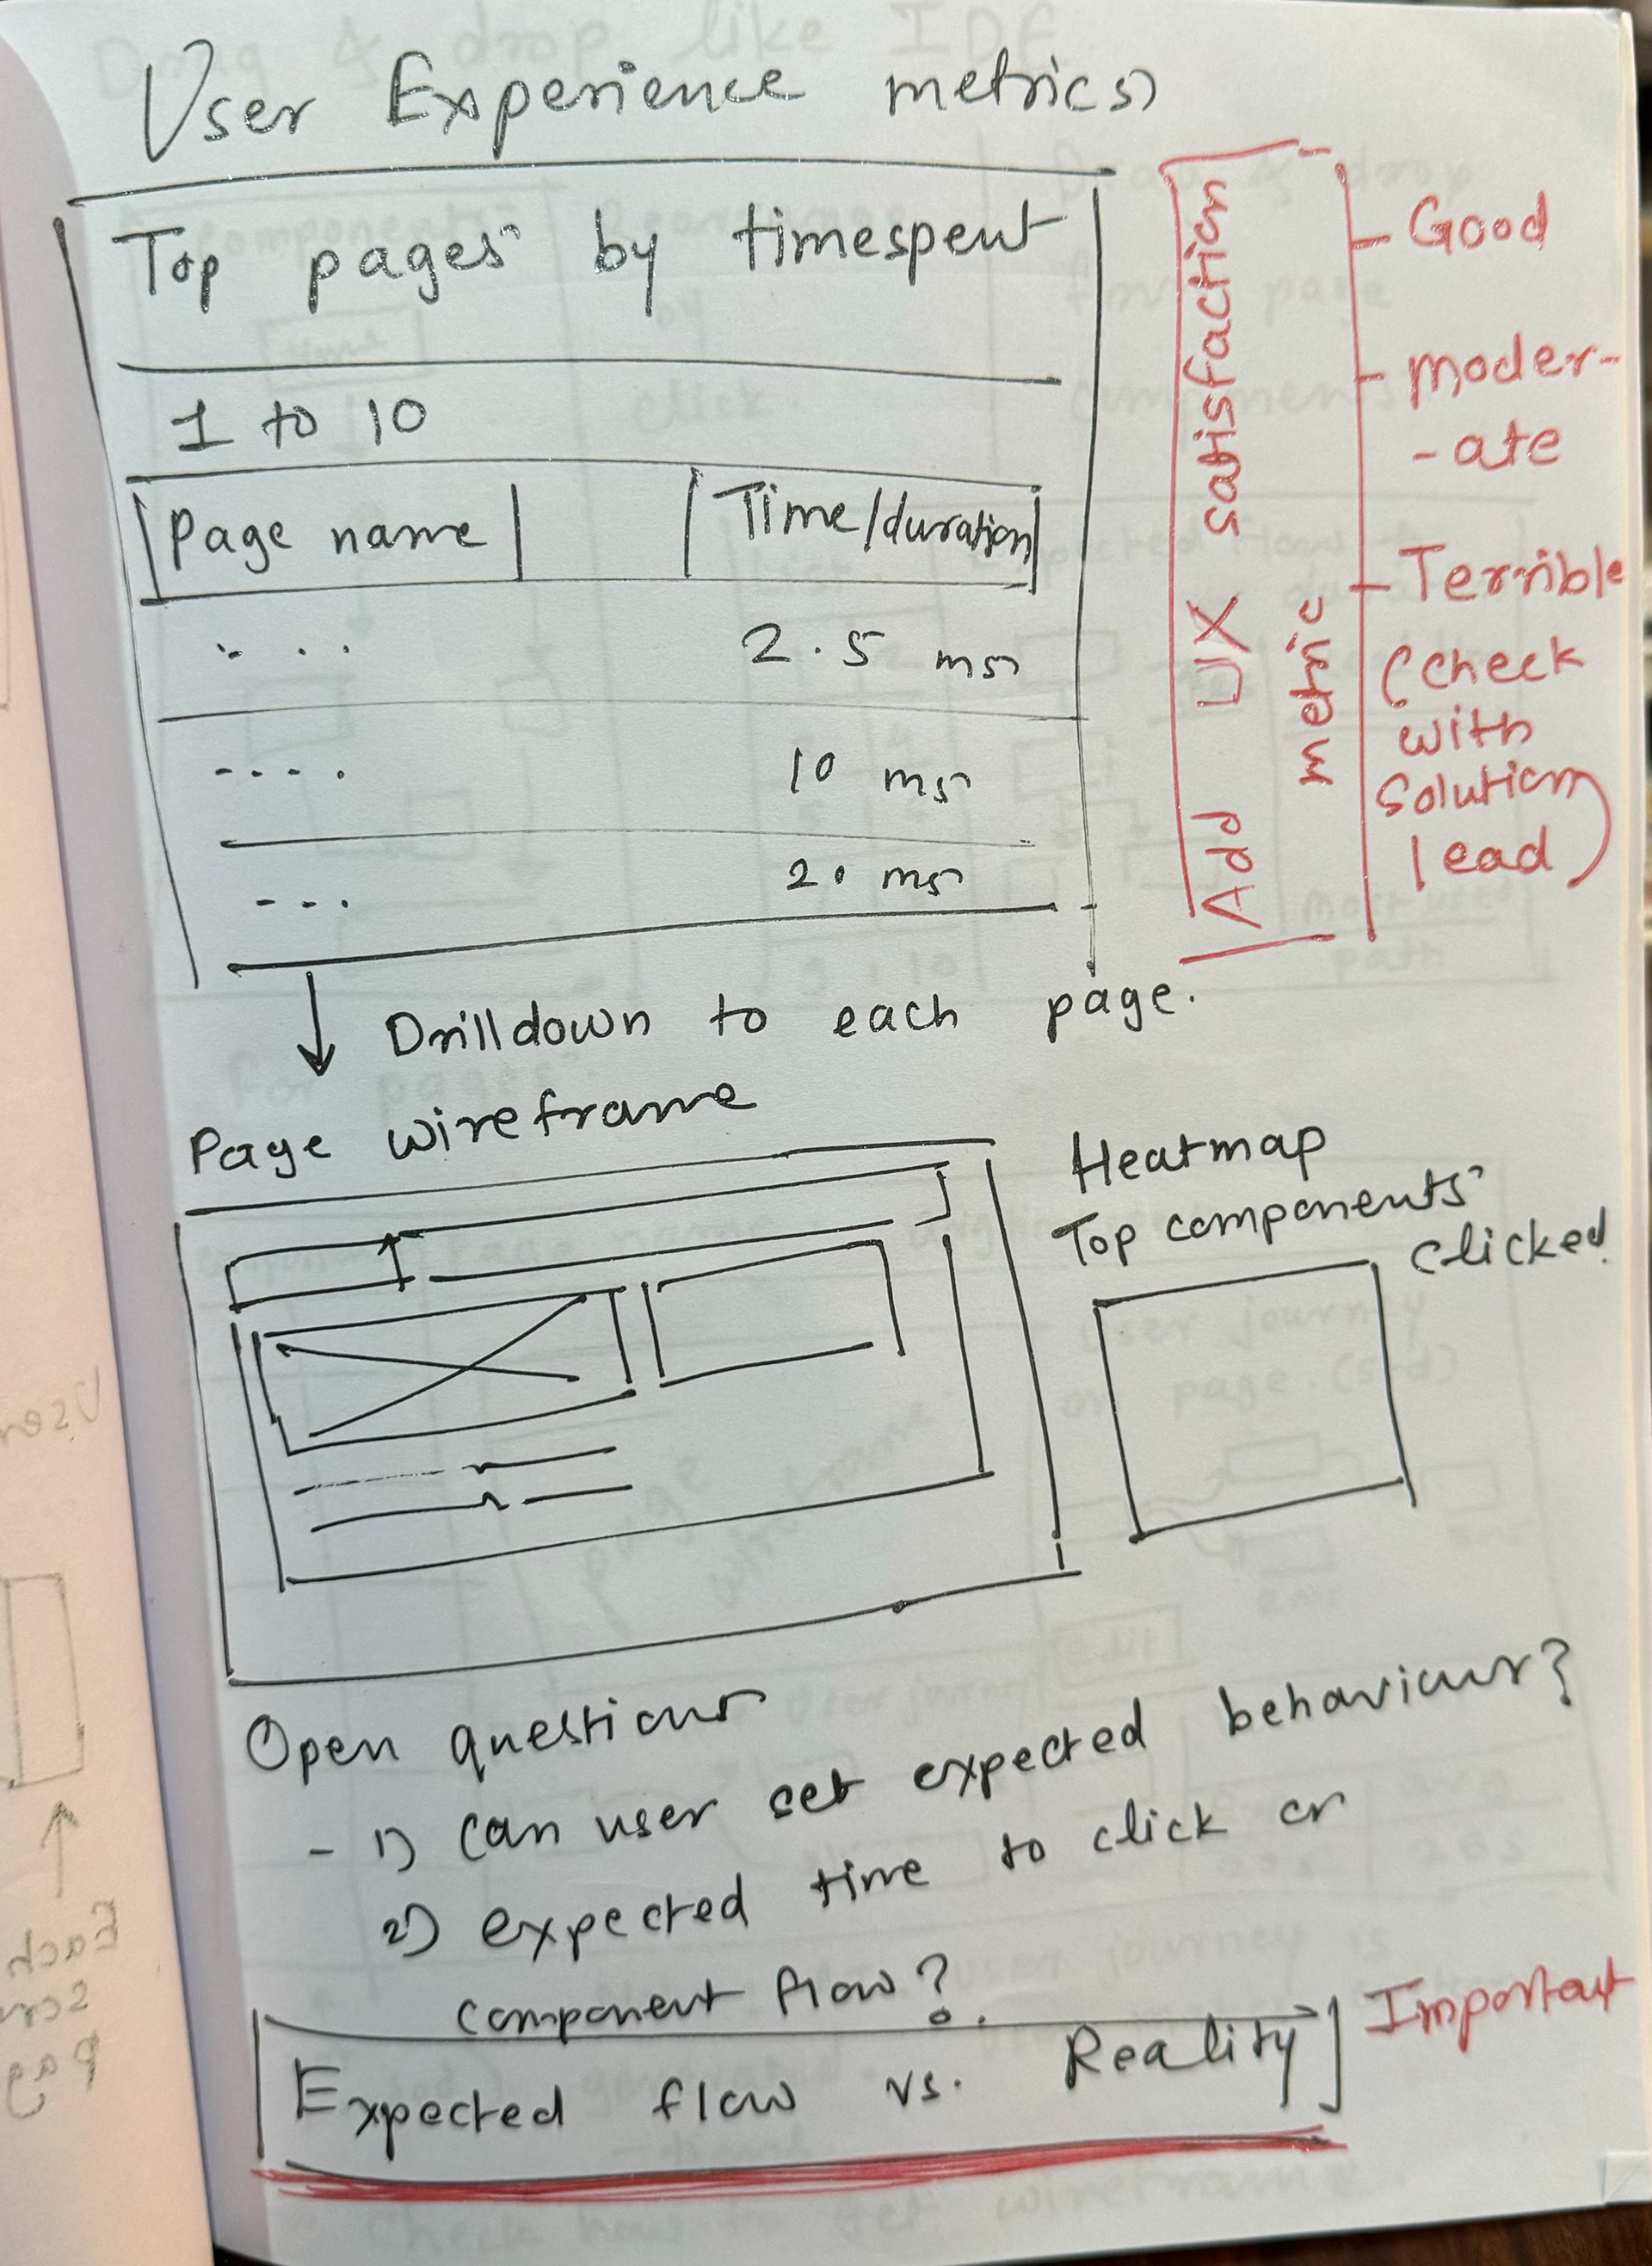 User Experience metrics
Top pages by timespent
1 to 10
Page name Time/duration
2.5 ms
10 ms
20 ms
Add UX satisfaction
metric
Good
moder-
-ate
Terrible
(check
with
solution
lead)
Drilldown to each page.
Page wireframe
Heatmap
Top components
clicked
Open questions
- 1) Can user set expected behaviour?
2) expected time to click or
component flow?
Expected flow vs. Reality
Important